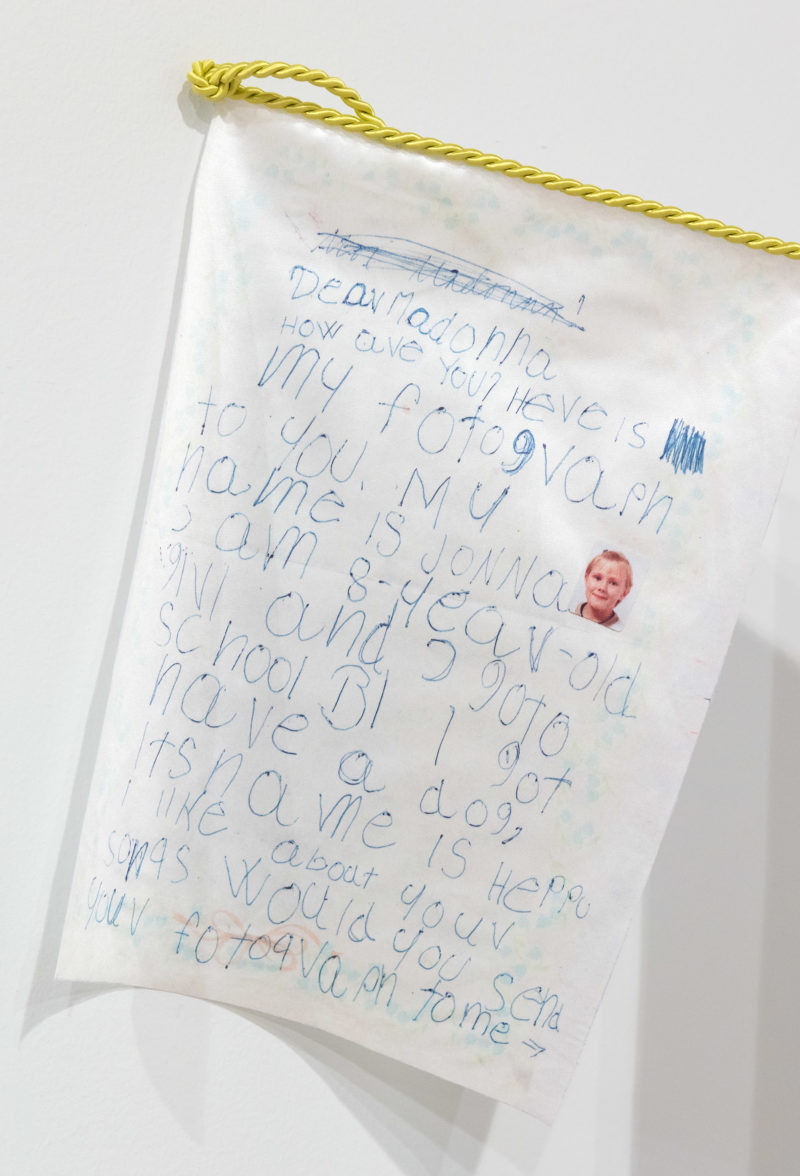 Dear Madonna
How are you? Here is
my fotograph
to you. My
name is Jonna
I am 8-year-old
girl and I goto
school B1 I got
have a dog,
Its name is Heppu
i like about your
songs would you send
your fotograph to me →